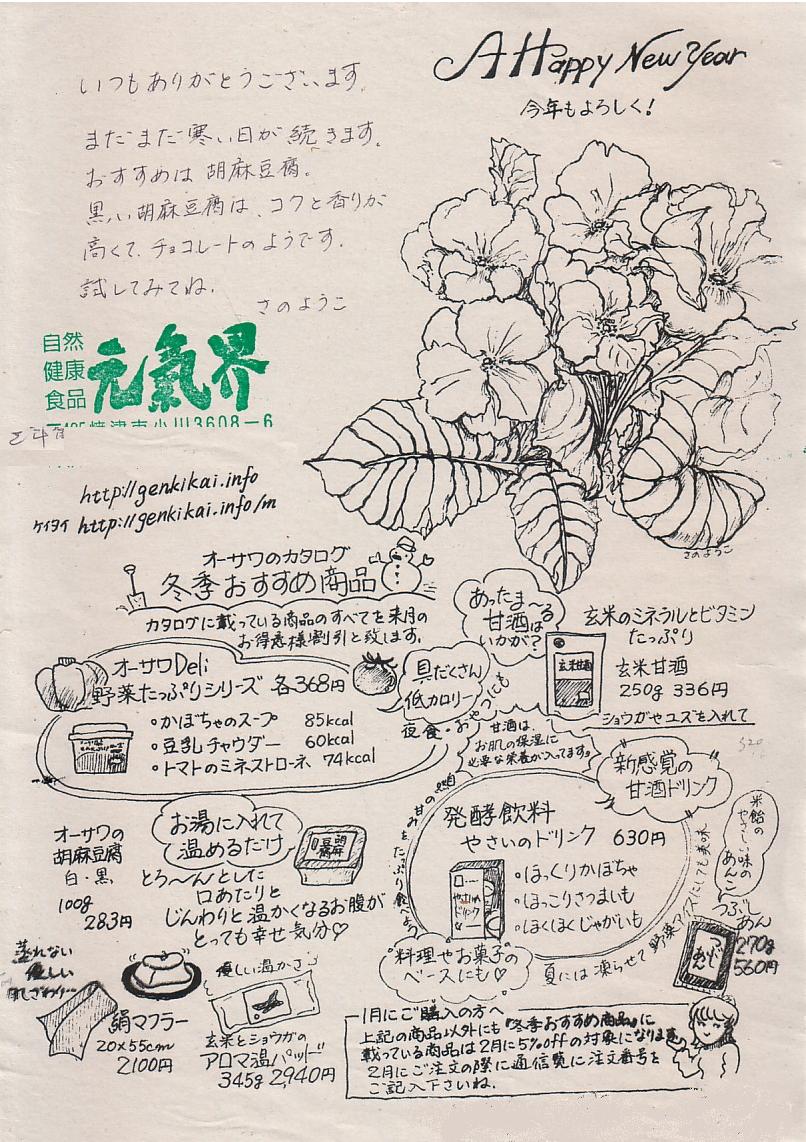 A Happy New Year
今年もよろしく!
いつもありがとうございます。
まだまだ寒い日が続きます。
おすすめは胡麻豆腐。
黒い胡麻豆腐は、コクと香りが
高くて、チョコレートのようです。
試してみてね。
さのようこ
自然
健康
食品
元氣界
焼津市小川3608-6
http://genkikai.info
ケイタイ http://genkikai.info/m
さのようこ
オーサワのカタログ
冬季おすすめ商品
カタログに載っている商品のすべてを来月の
お得意様割引と致します。
オーサワDeli
野菜たっぷりシリーズ 各368円
・かぼちゃのスープ 85kcal
・豆乳チャウダー 60kcal
・トマトのミネストローネ 74kcal
具だくさん
低カロリー
夜食・おやつにも
あったま〜る
甘酒は
いかが?
玄米のミネラルとビタミン
たっぷり
玄米甘酒
玄米甘酒
250g 336円
ショウガやユズを入れて
甘酒は、
お肌の保湿に
必要な栄養が入ってます。
新感覚の
甘酒ドリンク
発酵飲料
やさいのドリンク 630円
・ほっくりかぼちゃ
・ほっこりさつまいも
・ほくほくじゃがいも
料理やお菓子の
ベースにも♡
夏には凍らせて野菜アイスにしても美味
米飴の
やさしい味の
あんこ
つぶしあん
270g
560円
オーサワの
胡麻豆腐
白・黒
100g
283円
お湯に入れて
温めるだけ
とろ〜んとした
口あたりと
じんわりと温かくなるお腹が
とっても幸せ気分♡
蒸れない
優しい
肌ざわり…
絹マフラー
20×55cm
2100円
優しい温かさ
玄米とショウガの
アロマ温パッド
345g 2,940円
1月にご購入の方へ
上記の商品以外にも『冬季おすすめ商品』に
載っている商品は2月に5%offの対象になります
2月にご注文の際に通信覧に注文番号を
ご記入下さいね。